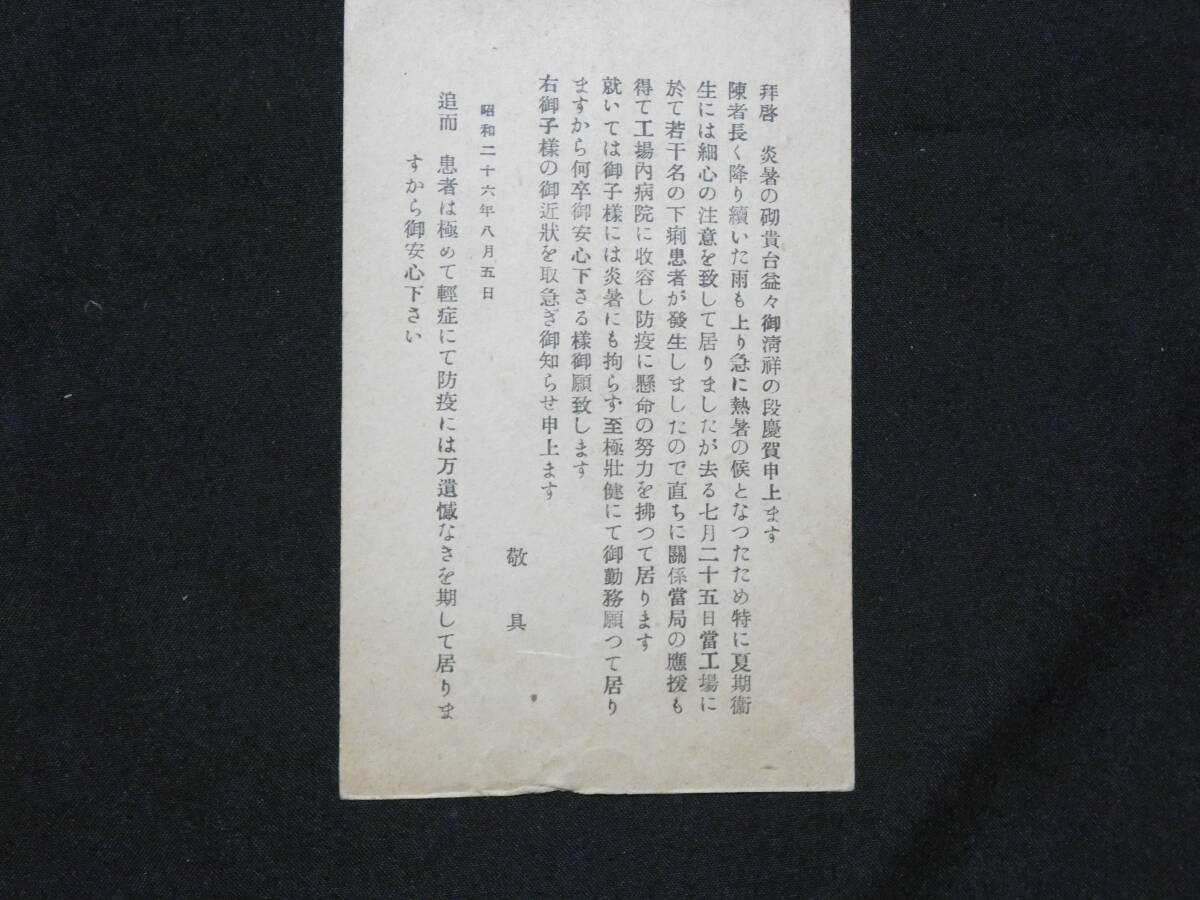 拜啓　炎暑の砌貴台益々御淸祥の段慶賀申上ます
陳者長く降り續いた雨も上り急に熱暑の候となつたため特に夏期衞
生には細心の注意を致して居りましたが去る七月二十五日當工場に
於て若干名の下痢患者が發生しましたので直ちに關係當局の應援も
得て工場內病院に收容し防疫に懸命の努力を拂つて居ります
就いては御子樣には炎暑にも拘らず至極壯健にて御勤務願つて居り
ますから何卒御安心下さる樣御願致します
右御子樣の御近狀を取急ぎ御知らせ申上ます
敬具
昭和二十六年八月五日
追而　患者は極めて輕症にて防疫には万遺憾なきを期して居りま
すから御安心下さい